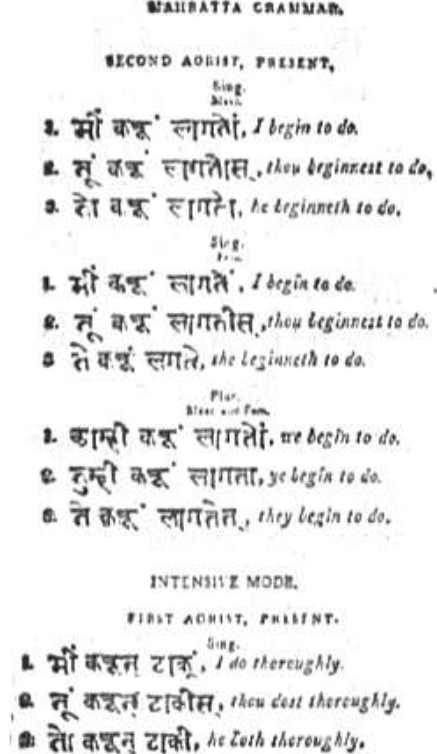 MAHRATTA GRAMMAR.
SECOND AORIST, PRESENT,
Sing.
Masc.
1. मीं करूं लागतों, I begin to do.
2. तूं करूं लागतोस्, thou beginnest to do,
3. तो करूं लागतो, he beginneth to do.
Sing.
Fem.
1. मीं करूं लागतें, I begin to do.
2. तूं करूं लागतीस्, thou beginnest to do.
3 ते करूं लागते, she beginneth to do.
Plur.
Masc and Fem.
1. आम्ही करूं लागतों, we begin to do.
2. तुम्ही करूं लागता, ye begin to do.
3. ते करूं लागतेत्, they begin to do.
INTENSIVE MODE,
FIRST AORIST, PRESENT.
Sing.
1. मीं करून् टाकूं, I do thoroughly.
2. तूं करून् टाकीस्, thou dost thoroughly.
3. तो करून् टाकी, he doth thoroughly,